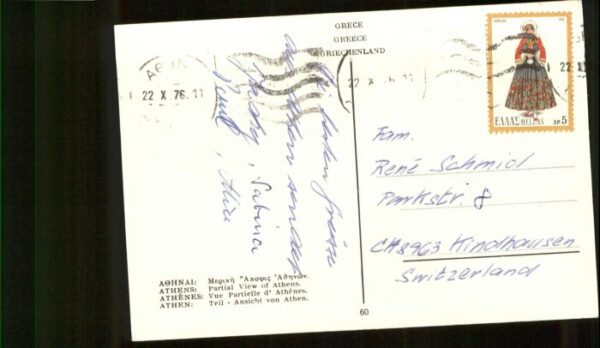 GRECE
GREECE
GRIECHENLAND
ΑΘΗΝ
22 X 76.11
22 X 76.11
22 X
ΕΛΛΑΣ HELLAS ΔΡ 5
Grüsse
senden
Sabina
Fam.
René Schmid
Parkstr 8
CH 8963 Kindhausen
Switzerland
ΑΘΗΝΑΙ: Μερική Ἄποψις Ἀθηνῶν.
ATHENS: Partial View of Athens.
ATHÈNES: Vue Partielle d' Athènes.
ATHEN: Teil - Ansicht von Athen.
60